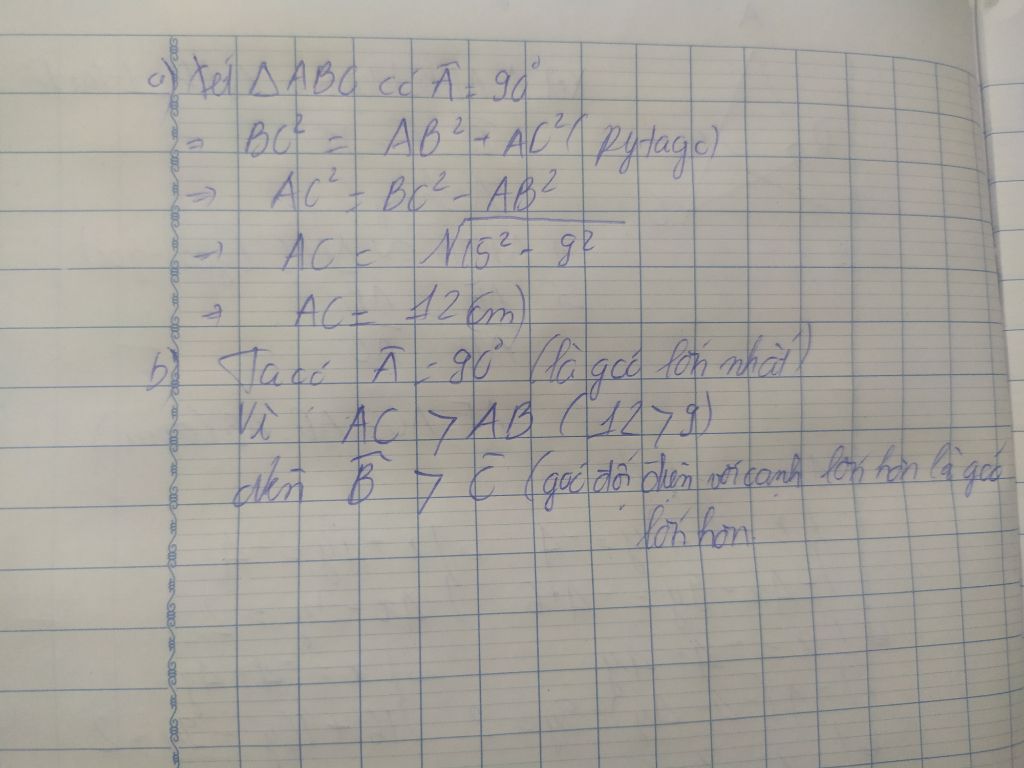 a) Xét △ABC có Â = 90°
⇒ BC² = AB² + AC² (Pytago)
⇒ AC² = BC² - AB²
⇒ AC = √15² - 9²
⇒ AC = 12 (cm)
b) Ta có Â = 90° (là góc lớn nhất)
Vì AC > AB (12 > 9)
nên B̂ > Ĉ (góc đối diện với cạnh lớn hơn là góc
lớn hơn